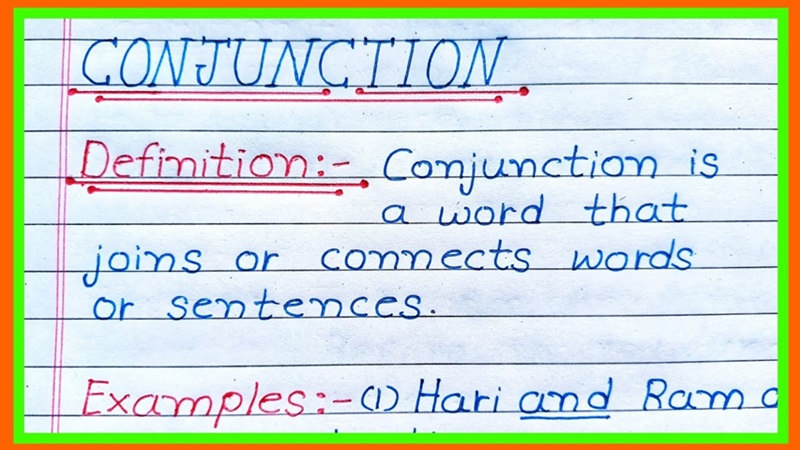 CONJUNCTION
Definition:- Conjunction is
a word that
joins or connects words
or sentences.
Examples:- (1) Hari and Ram